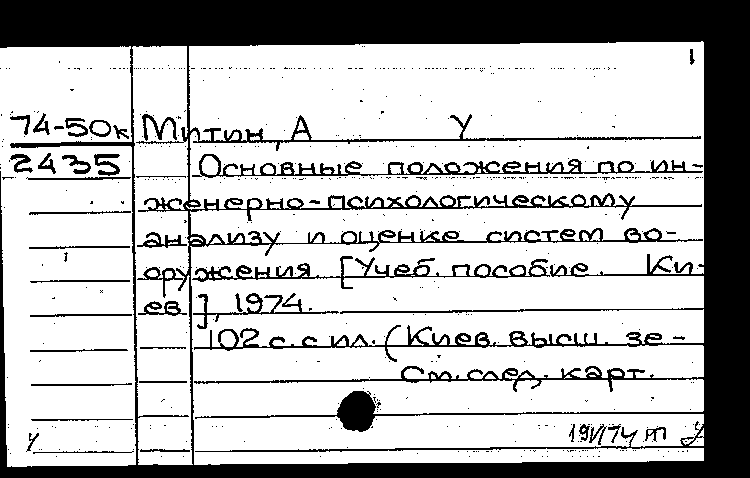 1
74-50к Митин, А У
2435 Основные положения по ин-
женерно-психологическому
анализу и оценке систем во-
оружения. [Учеб. пособие. Ки-
ев], 1974.
102 с. с ил. (Киев. высш. зе-
См. след. карт.